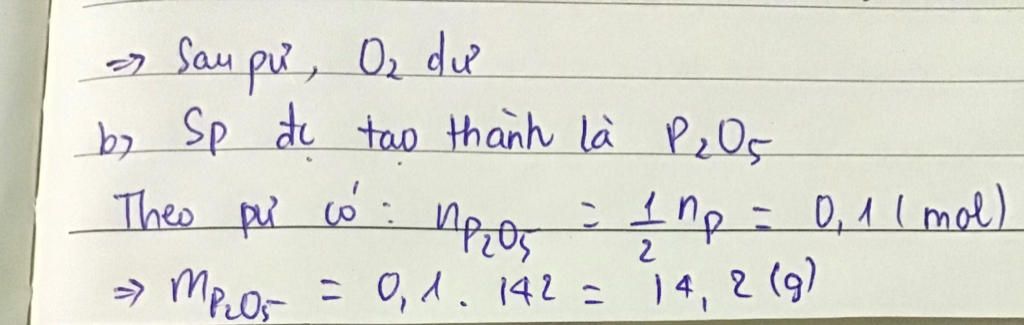 => Sau pứ, O₂ dư
b, Sp đc tạo thành là P₂O₅
Theo pứ có: nP₂O₅ = 1/2 nP = 0,1 (mol)
=> mP₂O₅ = 0,1 . 142 = 14,2 (g)